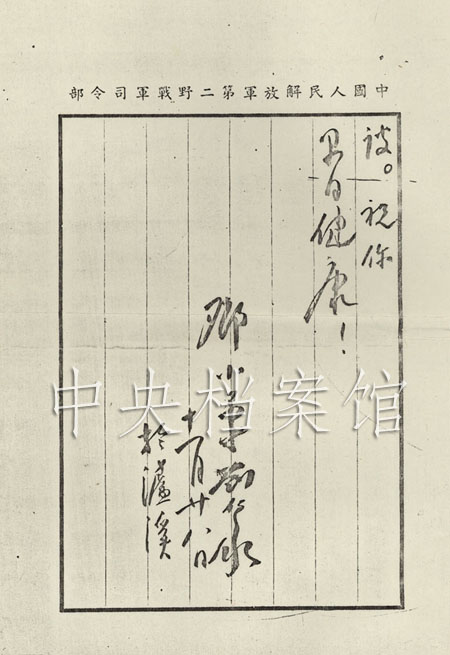 中國人民解放軍第二野戰軍司令部
祝你
早日健康！
鄧小平 劉伯承
十一月廿八日
於瀘溪
中央档案馆